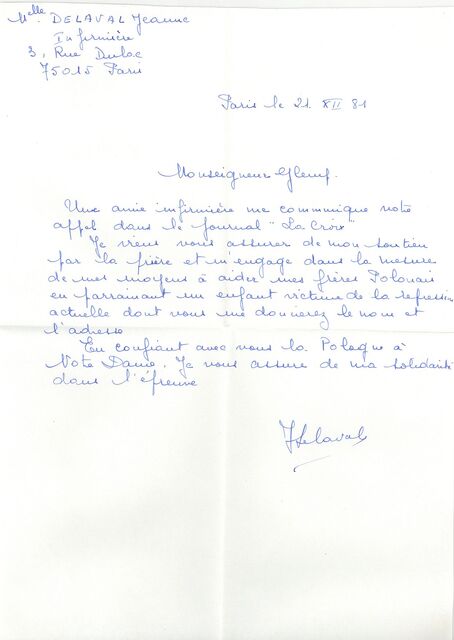 Melle. DELAVAL Jeanne
Infirmière
3, Rue Dulac
75015 Paris
Paris le 21. XII 81
Monseigneur Glemp.
Une amie infirmière me communique votre
appel dans le journal "La Croix"
Je viens vous assurer de mon soutien
par la prière et m'engage dans la mesure
de mes moyens à aider mes frères Polonais
en parrainant un enfant victime de la répression
actuelle dont vous me donnerez le nom et
l'adresse
En confiant avec vous la Pologne à
Notre Dame, Je vous assure de ma solidarité
dans l'épreuve
JDelaval